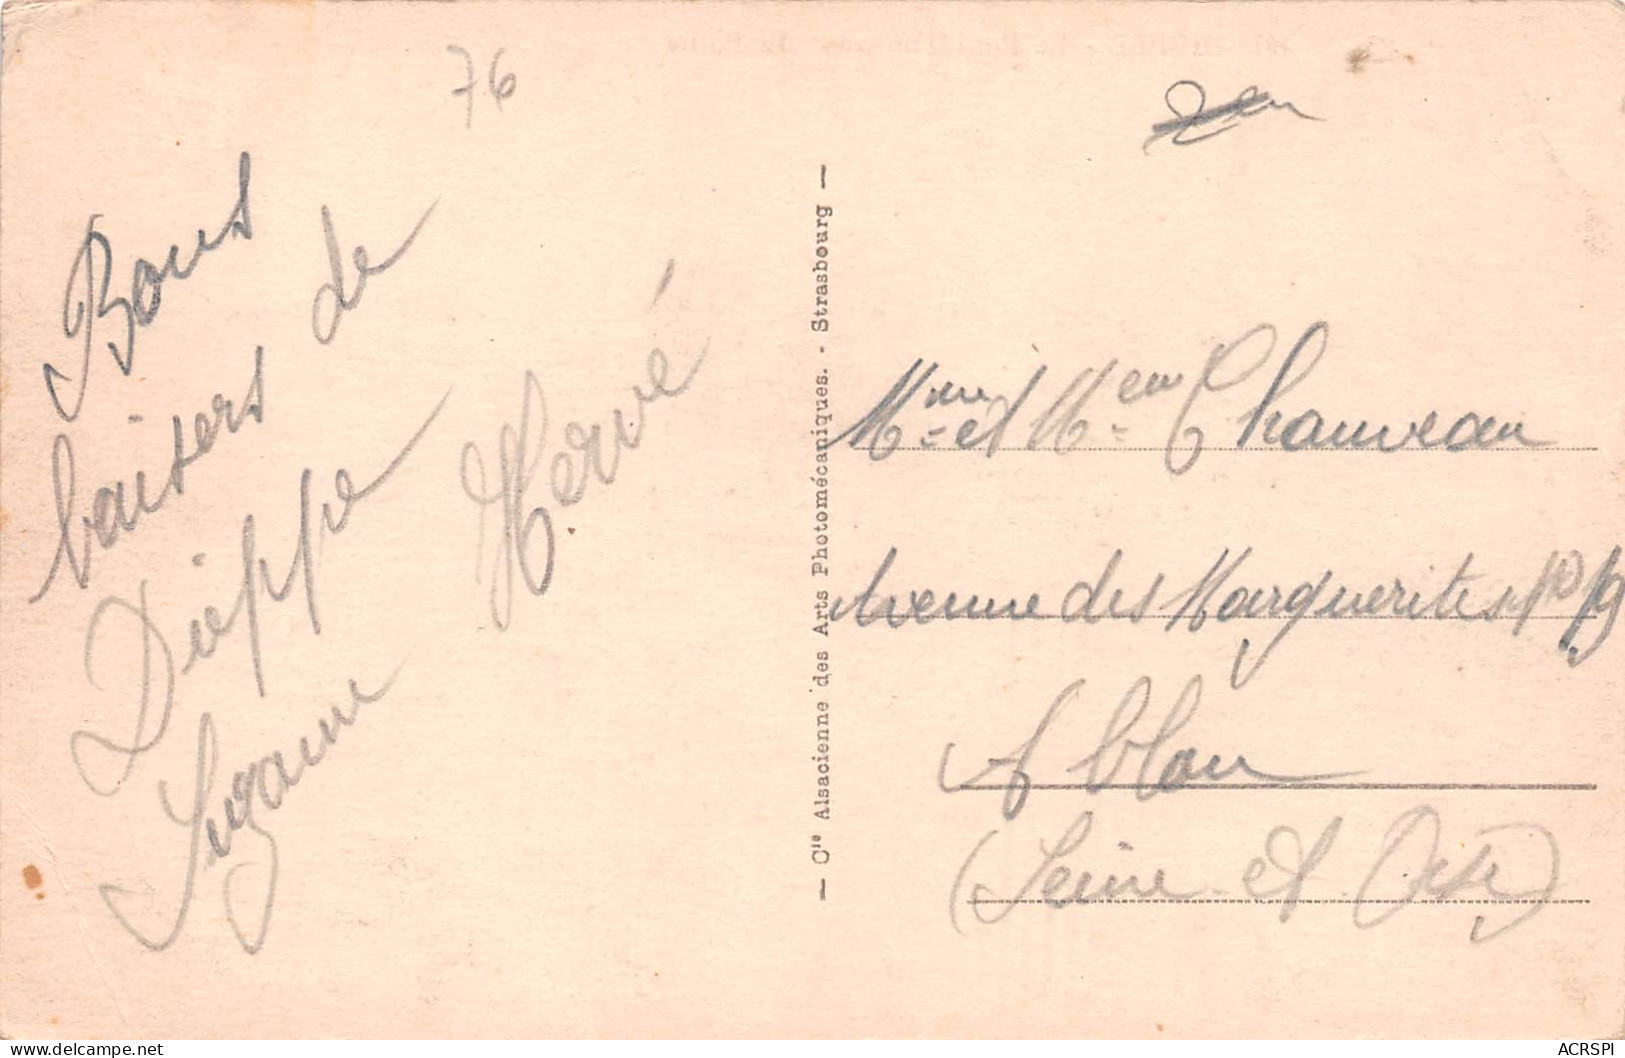 76
Bons
baisers de
Dieppe
Suzanne Hervé
— Cie Alsacienne des Arts Photomécaniques. - Strasbourg —
Mme et Mem Chauveau
Avenue des Marguerites No 19
Ablon
(Seine et Oise)
delcampe.net
ACRSPI